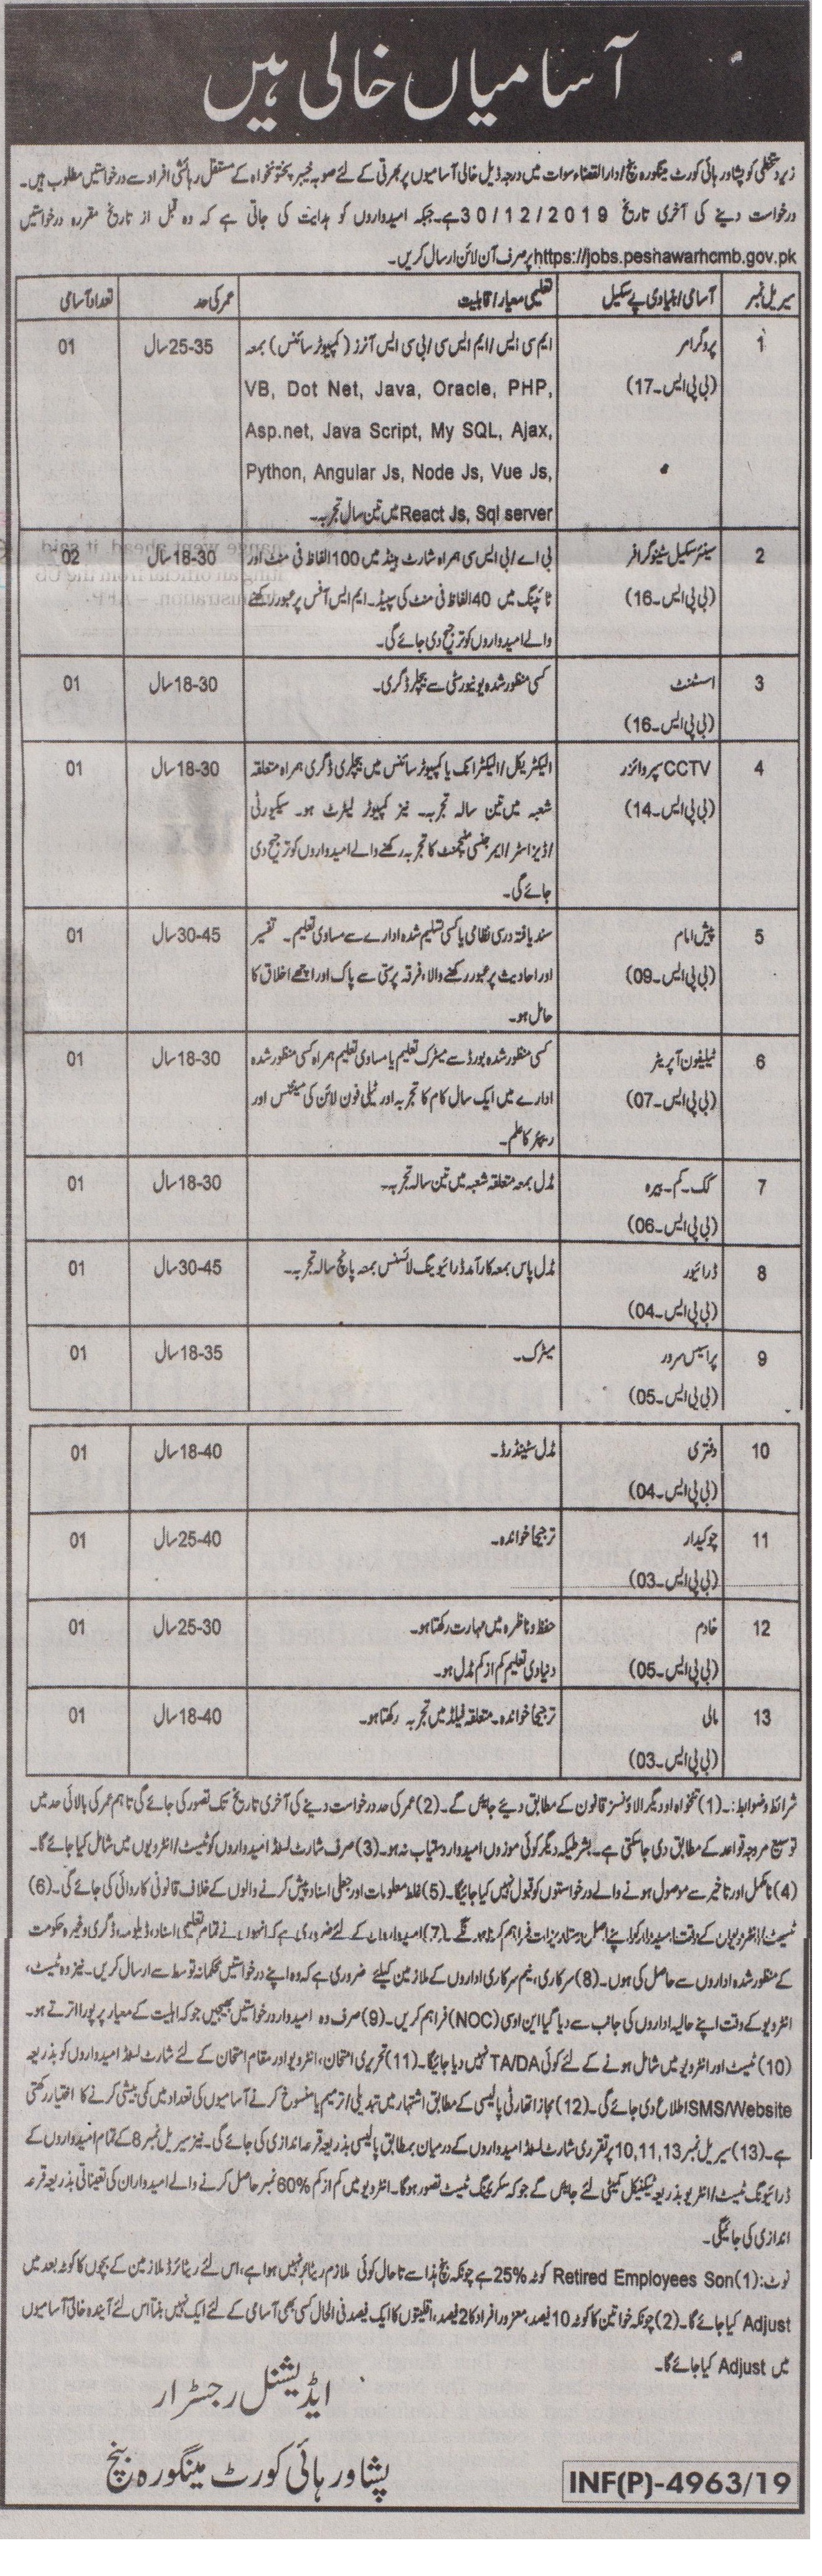 آسامیاں خالی ہیں
زیر دستخطی کو پشاور ہائی کورٹ مینگورہ بنچ/دارالقضاء سوات میں درجہ ذیل خالی آسامیوں پر بھرتی کے لئے صوبہ خیبر پختونخواہ کے مستقل رہائشی افراد سے درخواستیں مطلوب ہیں۔
درخواست دینے کی آخری تاریخ 30/12/2019 ہے۔ جبکہ امیدواروں کو ہدایت کی جاتی ہے کہ وہ قبل از تاریخ مقررہ درخواستیں
https://jobs.peshawarhcmb.gov.pk پر صرف آن لائن ارسال کریں۔
سیریل نمبر آسامی/بنیادی پے سکیل تعلیمی معیار/قابلیت عمر کی حد تعداد آسامی
1 پروگرامر ایم سی ایس/ایم ایس سی/بی سی ایس آنرز (کمپیوٹر سائنس) بمعہ 25-35 سال 01
(بی پی ایس۔17) VB, Dot Net, Java, Oracle, PHP,
Asp.net, Java Script, My SQL, Ajax,
Python, Angular Js, Node Js, Vue Js,
React Js, Sql server میں تین سال تجربہ۔
2 سینئر سکیل سٹینوگرافر بی اے/بی ایس سی ہمراہ شارٹ ہینڈ میں 100 الفاظ فی منٹ اور 18-30 سال 02
(بی پی ایس۔16) ٹائپنگ میں 40 الفاظ فی منٹ کی سپیڈ۔ ایم ایس آفس پر عبور رکھنے
والے امیدواروں کو ترجیح دی جائے گی۔
3 اسسٹنٹ کسی منظور شدہ یونیورسٹی سے بیچلر ڈگری۔ 18-30 سال 01
(بی پی ایس۔16)
4 CCTV سپروائزر الیکٹریکل/الیکٹرانک یا کمپیوٹر سائنس میں بیچلری ڈگری ہمراہ متعلقہ 18-30 سال 01
(بی پی ایس۔14) شعبہ میں تین سالہ تجربہ۔ نیز کمپیوٹر لیٹرٹ ہو۔ سیکیورٹی
/ڈیزاسٹر/ایمرجنسی منیجمنٹ کا تجربہ رکھنے والے امیدواروں کو ترجیح دی
جائے گی۔
5 پیش امام سند یافتہ درسی نظامی یا کسی تسلیم شدہ ادارے سے مساوی تعلیم۔ تفسیر 30-45 سال 01
(بی پی ایس۔09) اور احادیث پر عبور رکھنے والا، فرقہ پرستی سے پاک اور اچھے اخلاق کا
حامل ہو۔
6 ٹیلیفون آپریٹر کسی منظور شدہ بورڈ سے میٹرک تعلیم یا مساوی تعلیم ہمراہ کسی منظور شدہ 18-30 سال 01
(بی پی ایس۔07) ادارے میں ایک سال کام کا تجربہ اور ٹیلی فون لائن کی مینٹنس اور
ریپئر کا علم۔
7 کک۔کم۔بیرہ مڈل بمعہ متعلقہ شعبہ میں تین سالہ تجربہ۔ 18-30 سال 01
(بی پی ایس۔06)
8 ڈرائیور مڈل پاس بمعہ کارآمد ڈرائیونگ لائسنس بمعہ پانچ سالہ تجربہ۔ 30-45 سال 01
(بی پی ایس۔04)
9 پراسیس سرور میٹرک۔ 18-35 سال 01
(بی پی ایس۔05)
10 دفتری مڈل سٹینڈرڈ۔ 18-40 سال 01
(بی پی ایس۔04)
11 چوکیدار ترجیحاً خواندہ۔ 25-40 سال 01
(بی پی ایس۔03)
12 خادم حفظ و ناظرہ میں مہارت رکھتا ہو۔ 25-30 سال 01
(بی پی ایس۔05) دنیاوی تعلیم کم از کم مڈل ہو۔
13 مالی ترجیحاً خواندہ۔ متعلقہ فیلڈ میں تجربہ رکھتا ہو۔ 18-40 سال 01
(بی پی ایس۔03)
شرائط و ضوابط:۔ (1) تنخواہ اور دیگر الاؤنسز قانون کے مطابق دیئے جائیں گے۔ (2) عمر کی حد درخواست دینے کی آخری تاریخ تک تصور کی جائے گی تاہم عمر کی بالائی حد میں
توسیع مروجہ قواعد کے مطابق دی جاسکتی ہے۔ بشرطیکہ دیگر کوئی موزوں امیدوار دستیاب نہ ہو۔ (3) صرف شارٹ لسٹڈ امیدواروں کو ٹیسٹ/انٹرویوں میں شامل کیا جائے گا۔
(4) نامکمل اور تاخیر سے موصول ہونے والے درخواستوں کو قبول نہیں کیا جائیگا۔ (5) غلط معلومات اور جعلی اسناد پیش کرنے والوں کے خلاف قانونی کاروائی کی جائے گی۔ (6)
ٹیسٹ/انٹرویوں کے وقت امیدوار کو اپنے اصل دستاویزات فراہم کرنا ہونگے۔ (7) امیدواروں کے لئے ضروری ہے کہ انہوں نے تمام تعلیمی اسناد، ڈپلومہ، ڈگری وغیرہ حکومت
کے منظور شدہ اداروں سے حاصل کی ہوں۔ (8) سرکاری، نیم سرکاری اداروں کے ملازمین کیلئے ضروری ہے کہ وہ اپنے درخواستیں محکمانہ توسط سے ارسال کریں۔ نیز وہ ٹیسٹ،
انٹرویو کے وقت اپنے حالیہ اداروں کی جانب سے دیا گیا این او سی (NOC) فراہم کریں۔ (9) صرف وہ امیدوار درخواستیں بھیجیں جو کہ اہلیت کے معیار پر پورا اترتے ہو۔
(10) ٹیسٹ اور انٹرویو میں شامل ہونے کے لئے کوئی TA/DA نہیں دیا جائیگا۔ (11) تحریری امتحان، انٹرویو اور مقام امتحان کے لئے شارٹ لسٹڈ امیدواروں کو بذریعہ
SMS/Website اطلاع دی جائے گی۔ (12) مجاز اتھارٹی پالیسی کے مطابق اشتہار میں تبدیلی/ترمیم یا منسوخ کرنے آسامیوں کی تعداد میں کمی بیشی کرنے کا اختیار رکھتی
ہے۔ (13) سیریل نمبر 10,11,13 پر تقرری شارٹ لسٹڈ امیدواروں کے درمیان بمطابق پالیسی بذریعہ قرعہ اندازی کی جائے گی۔ نیز سیریل نمبر 8 کے تمام امیدواروں کے
ڈرائیونگ ٹیسٹ/انٹرویو بذریعہ ٹیکنیکل کمیٹی لئے جائیں گے جو کہ سکریننگ ٹیسٹ تصور ہوگا۔ انٹرویو میں کم از کم 60% نمبر حاصل کرنے والے امیدواران کی تعیناتی بذریعہ قرعہ
اندازی کی جائیگی۔
نوٹ: (1) Retired Employees Son کوٹہ 25% ہے چونکہ بنچ ہذا سے تاحال کوئی ملازم ریٹائرڈ نہیں ہوا ہے، اس لئے ریٹائرڈ ملازمین کے بچوں کا کوٹہ بعد میں
Adjust کیا جائے گا۔ (2) چونکہ خواتین کا کوٹہ 10 فیصد، معزور افراد کا 2 فیصد، اقلیتوں کا ایک فیصد فی الحال کسی بھی آسامی کے لئے ایک نہیں بنتا اس لئے آئیندہ خالی آسامیوں
میں Adjust کیا جائے گا۔
ایڈیشنل رجسٹرار
پشاور ہائی کورٹ مینگورہ بنچ
INF(P)-4963/19